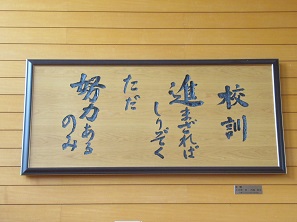 校訓
進まざれば
しりぞく
ただ
努力ある
のみ